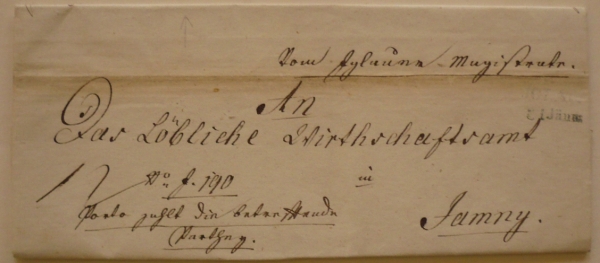 Vom Iglauer Magistrate.
An
Das Löbliche Wirthschaftsamt
in
No. 190
Porto zahlt die betreffende
Parthey.
Jamny.